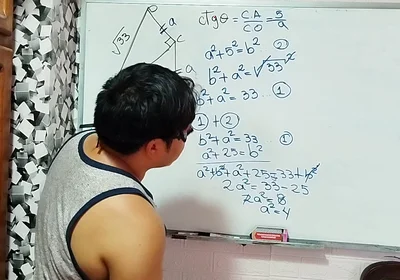 √33
a
C
a
ctgθ = CA/CO = 5/a
a² + 5² = b² ②
b² + a² = √33²
b² + a² = 33 ... ①
① + ②
b² + a² = 33 ①
a² + 25 = b²
a² + b² + a² + 25 = 33 + b²
2a² = 33 - 25
2a² = 8
a² = 4